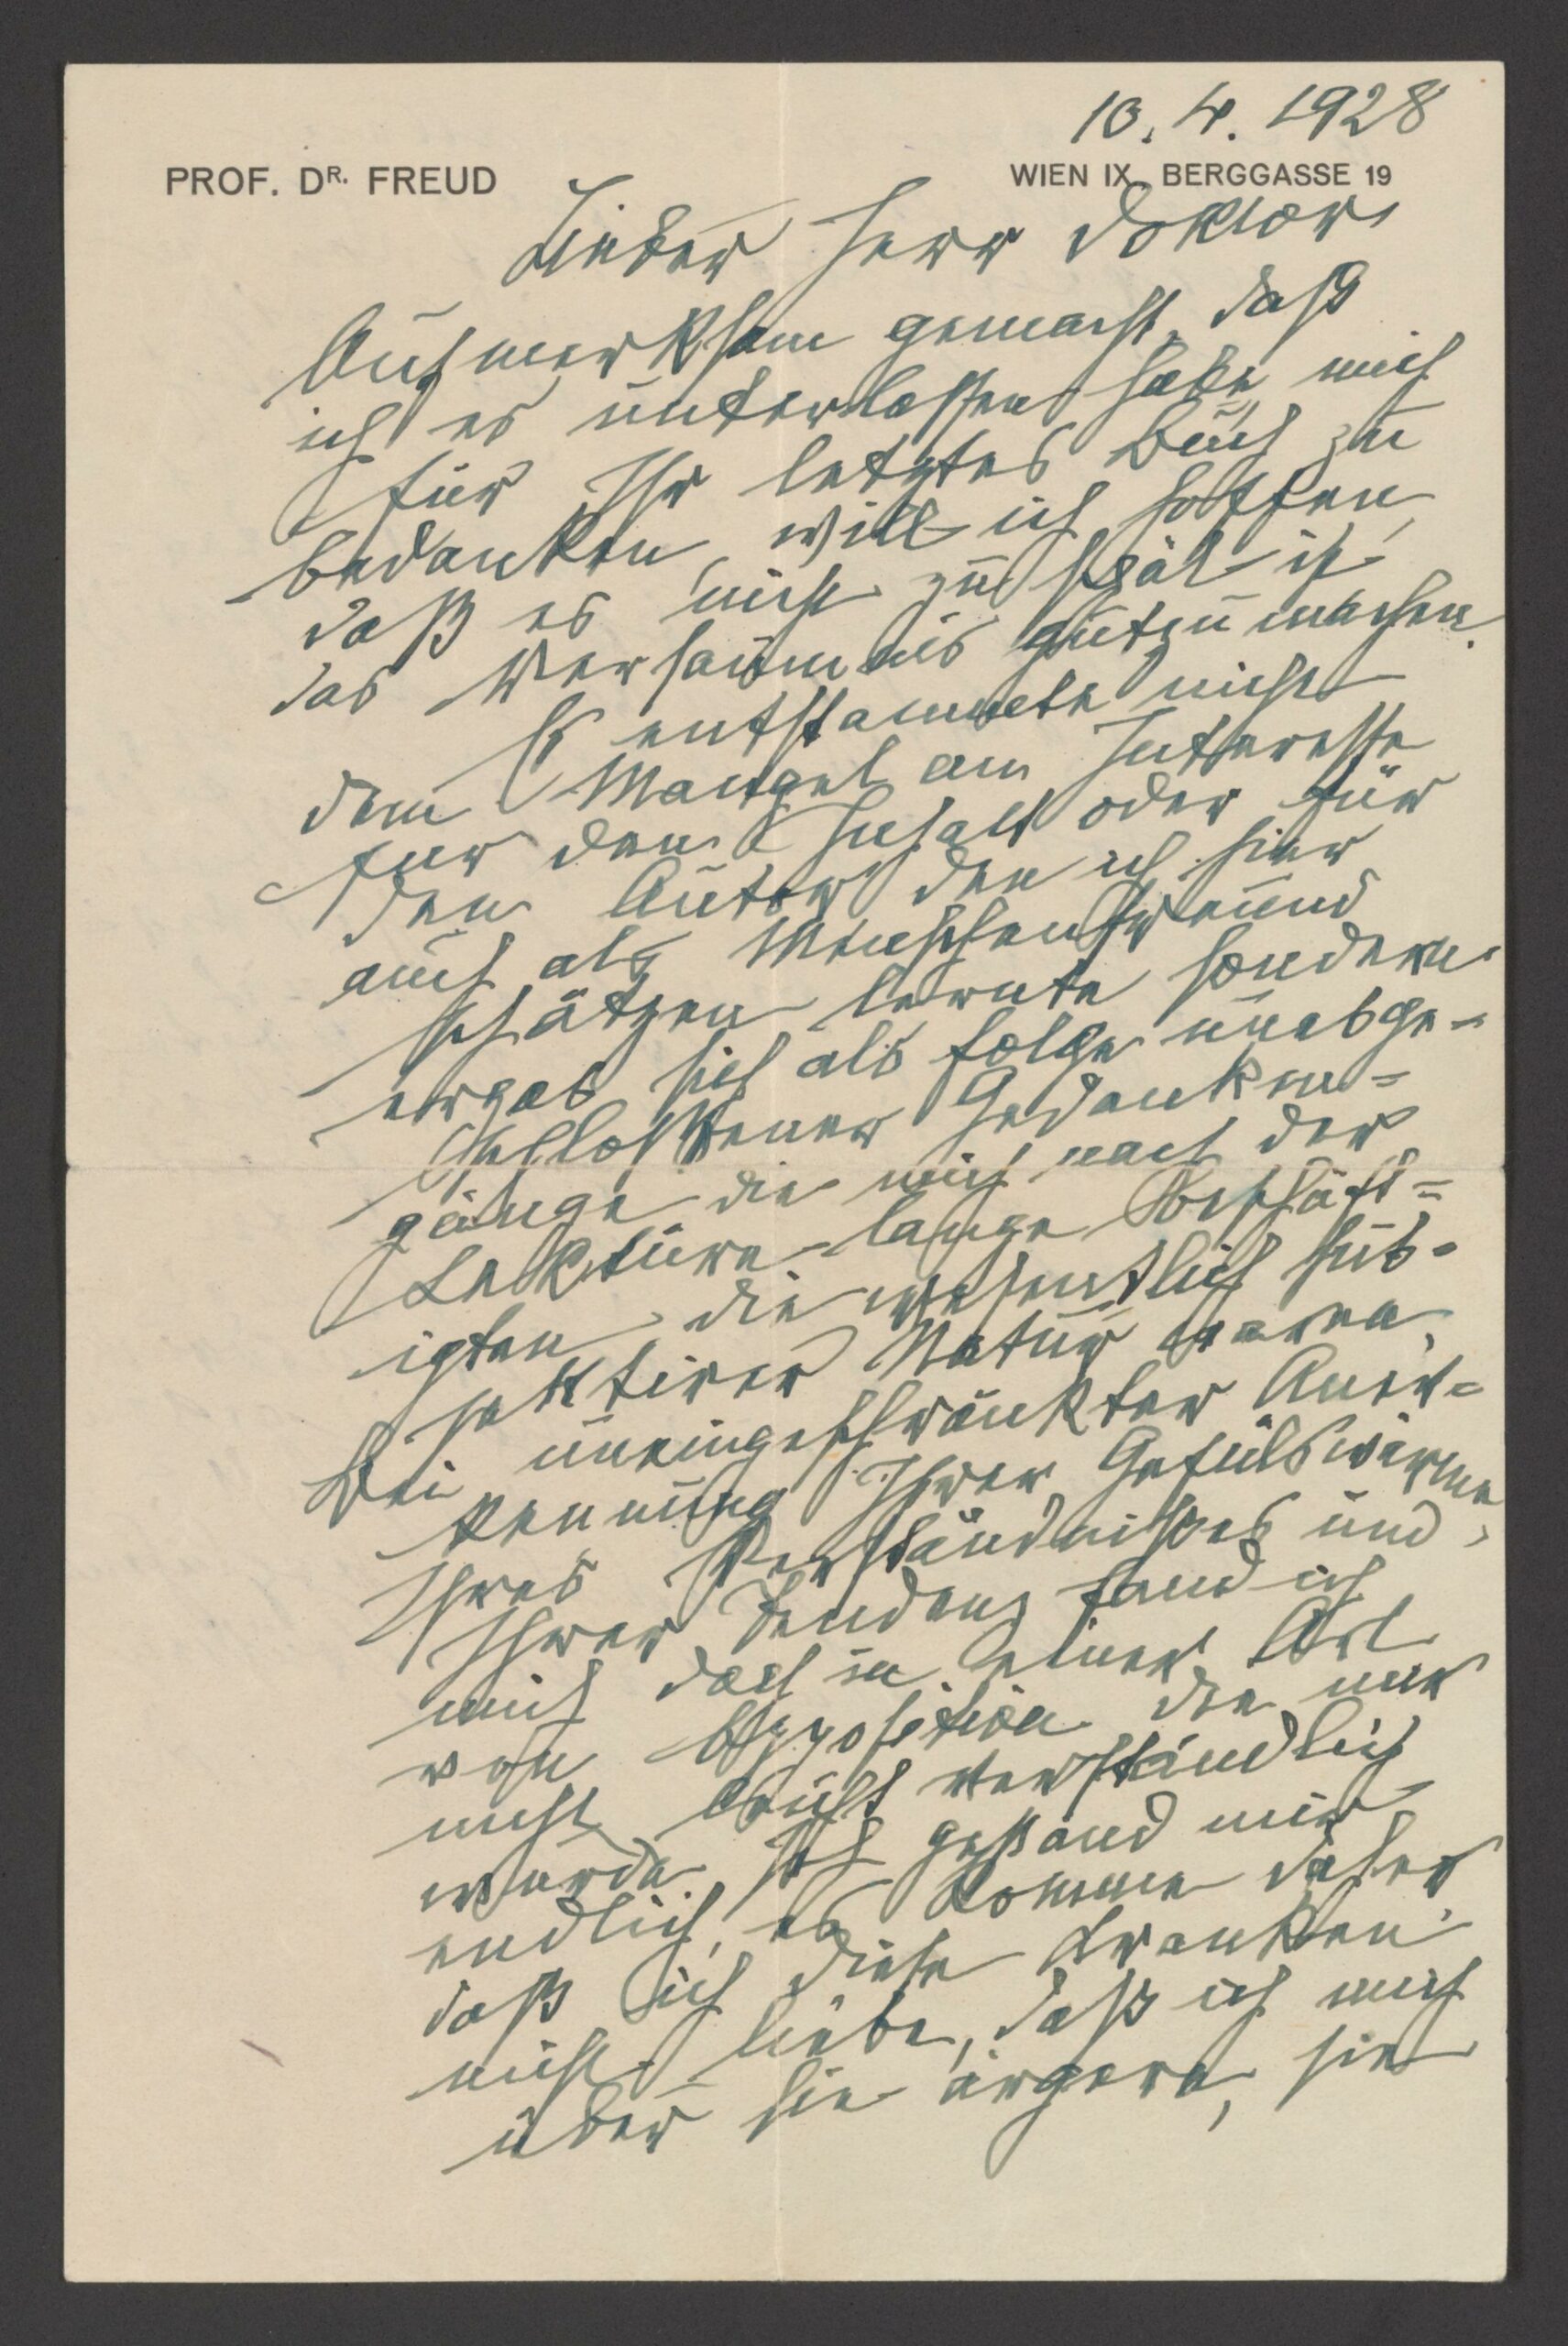 10. 4. 1928
PROF. DR. FREUD
WIEN IX., BERGGASSE 19
Lieber Herr Doktor
Aufmerksam gemacht, daß
ich es unterlassen habe, mich
für Ihr letztes Buch zu
bedanken, will ich hoffen,
daß es nicht zu spät ist
das Versäumnis gutzumachen.
Es entstammte nicht
dem Mangel an Interesse
für den Inhalt oder für
den Autor den ich hier
auch als Menschenfreund
schätzen lernte sondern
ergab sich als Folge unabge-
schlossener Gedanken-
gänge die mich nach der
Lektüre lange beschäft-
igten, die wesentlich sub-
jektiver Natur waren.
Bei uneingeschränkter Aner-
kennung Ihrer Gefühlswärme,
Ihres Verständnisses und
Ihrer Tendenz fand ich
mich doch in einer Art
von Opposition die mir
nicht leicht verständlich
wurde. Ich gestand mir
endlich, es komme daher
daß ich diese Kranken
nicht liebe, daß ich mich
über sie ärgere, sie